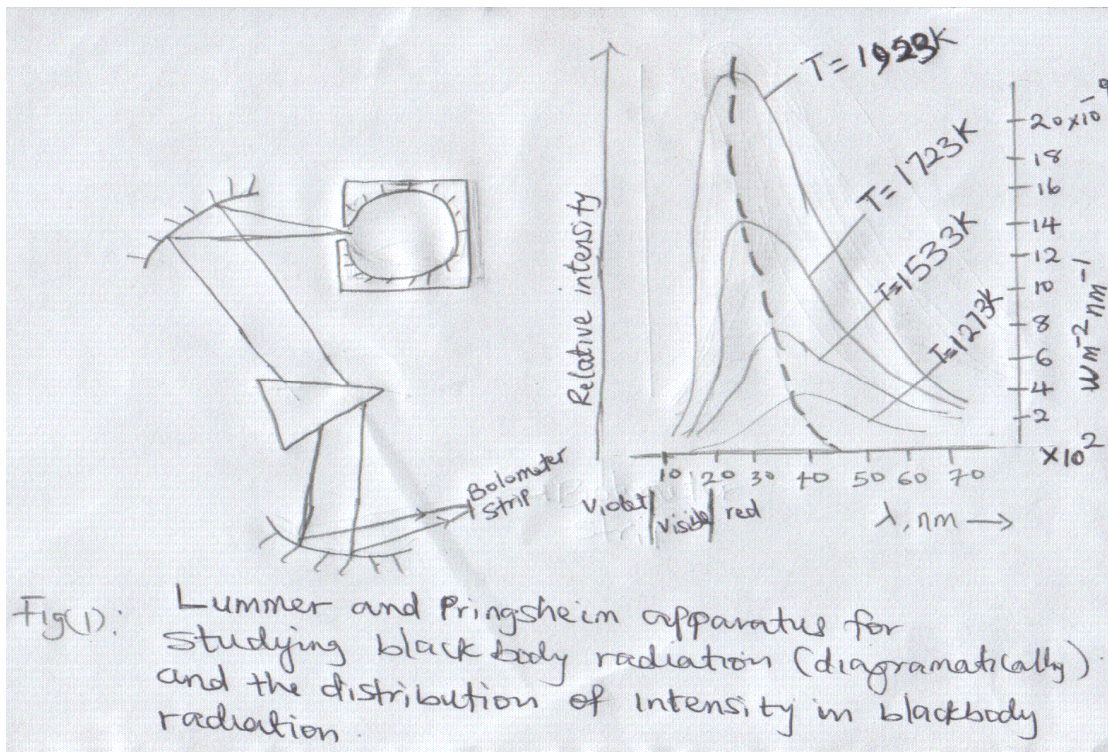 T=1923K
T=1723K
T=1533K
T=1273K
Relative intensity
20×10⁻⁹
18
16
14
12
10
8
6
4
2
Wm⁻²nm⁻¹
×10²
10 20 30 40 50 60 70
Violet visible red
λ, nm →
Bolometer
Strip
Fig(1): Lummer and Pringsheim apparatus for
studying black body radiation (diagramatically)
and the distribution of intensity in blackbody
radiation.